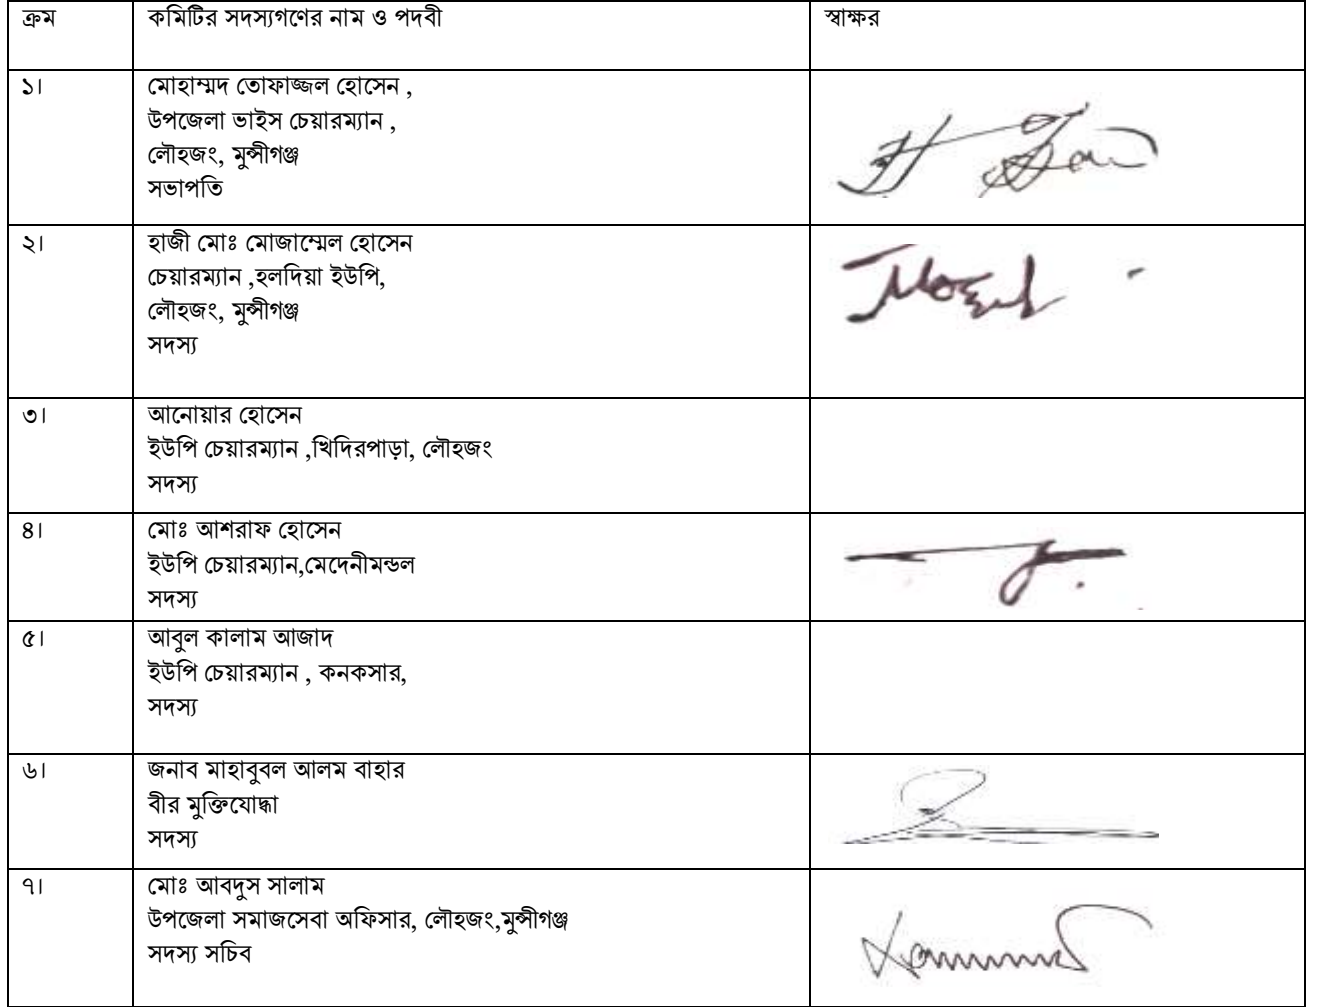 ক্রম কমিটির সদস্যগণের নাম ও পদবী স্বাক্ষর
১। মোহাম্মদ তোফাজ্জল হোসেন ,
উপজেলা ভাইস চেয়ারম্যান ,
লৌহজং, মুন্সীগঞ্জ
সভাপতি
২। হাজী মোঃ মোজাম্মেল হোসেন
চেয়ারম্যান ,হলদিয়া ইউপি,
লৌহজং, মুন্সীগঞ্জ
সদস্য
৩। আনোয়ার হোসেন
ইউপি চেয়ারম্যান ,খিদিরপাড়া, লৌহজং
সদস্য
৪। মোঃ আশরাফ হোসেন
ইউপি চেয়ারম্যান,মেদেনীমন্ডল
সদস্য
৫। আবুল কালাম আজাদ
ইউপি চেয়ারম্যান , কনকসার,
সদস্য
৬। জনাব মাহাবুবল আলম বাহার
বীর মুক্তিযোদ্ধা
সদস্য
৭। মোঃ আবদুস সালাম
উপজেলা সমাজসেবা অফিসার, লৌহজং,মুন্সীগঞ্জ
সদস্য সচিব